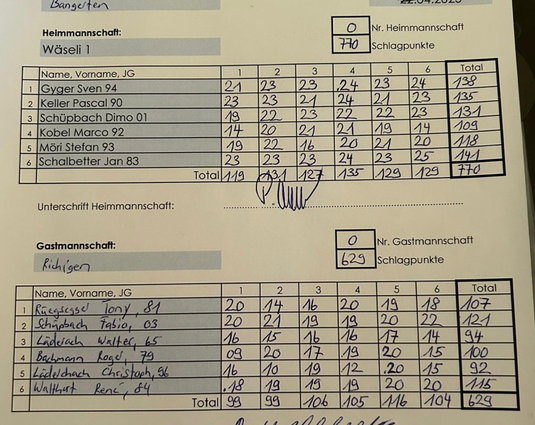 Bangerten
22.04.2023
Heimmannschaft: 0 Nr. Heimmannschaft
Wäseli 1 770 Schlagpunkte
Name, Vorname, JG 1 2 3 4 5 6 Total
1 Gyger Sven 94 21 23 23 24 23 24 138
2 Keller Pascal 90 23 23 21 24 21 23 135
3 Schüpbach Dimo 01 19 22 23 22 22 23 131
4 Kobel Marco 92 14 20 21 21 19 14 109
5 Möri Stefan 93 19 22 16 20 21 20 118
6 Schalbetter Jan 83 23 23 23 24 23 25 141
Total 119 131 127 135 129 129 770
Unterschrift Heimmannschaft:
Gastmannschaft: 0 Nr. Gastmannschaft
Richigen 629 Schlagpunkte
Name, Vorname, JG 1 2 3 4 5 6 Total
1 Rüegsegger Tony, 81 20 14 16 20 19 18 107
2 Schüpbach Fabio, 03 20 21 19 19 20 22 121
3 Läderach Walter, 65 16 15 16 16 17 14 94
4 Bachmann Roger, 79 09 20 17 19 20 15 100
5 Läderach Christoph, 96 16 10 19 12 20 15 92
6 Walthert René, 84 18 19 19 19 20 20 115
Total 99 99 106 105 116 104 629